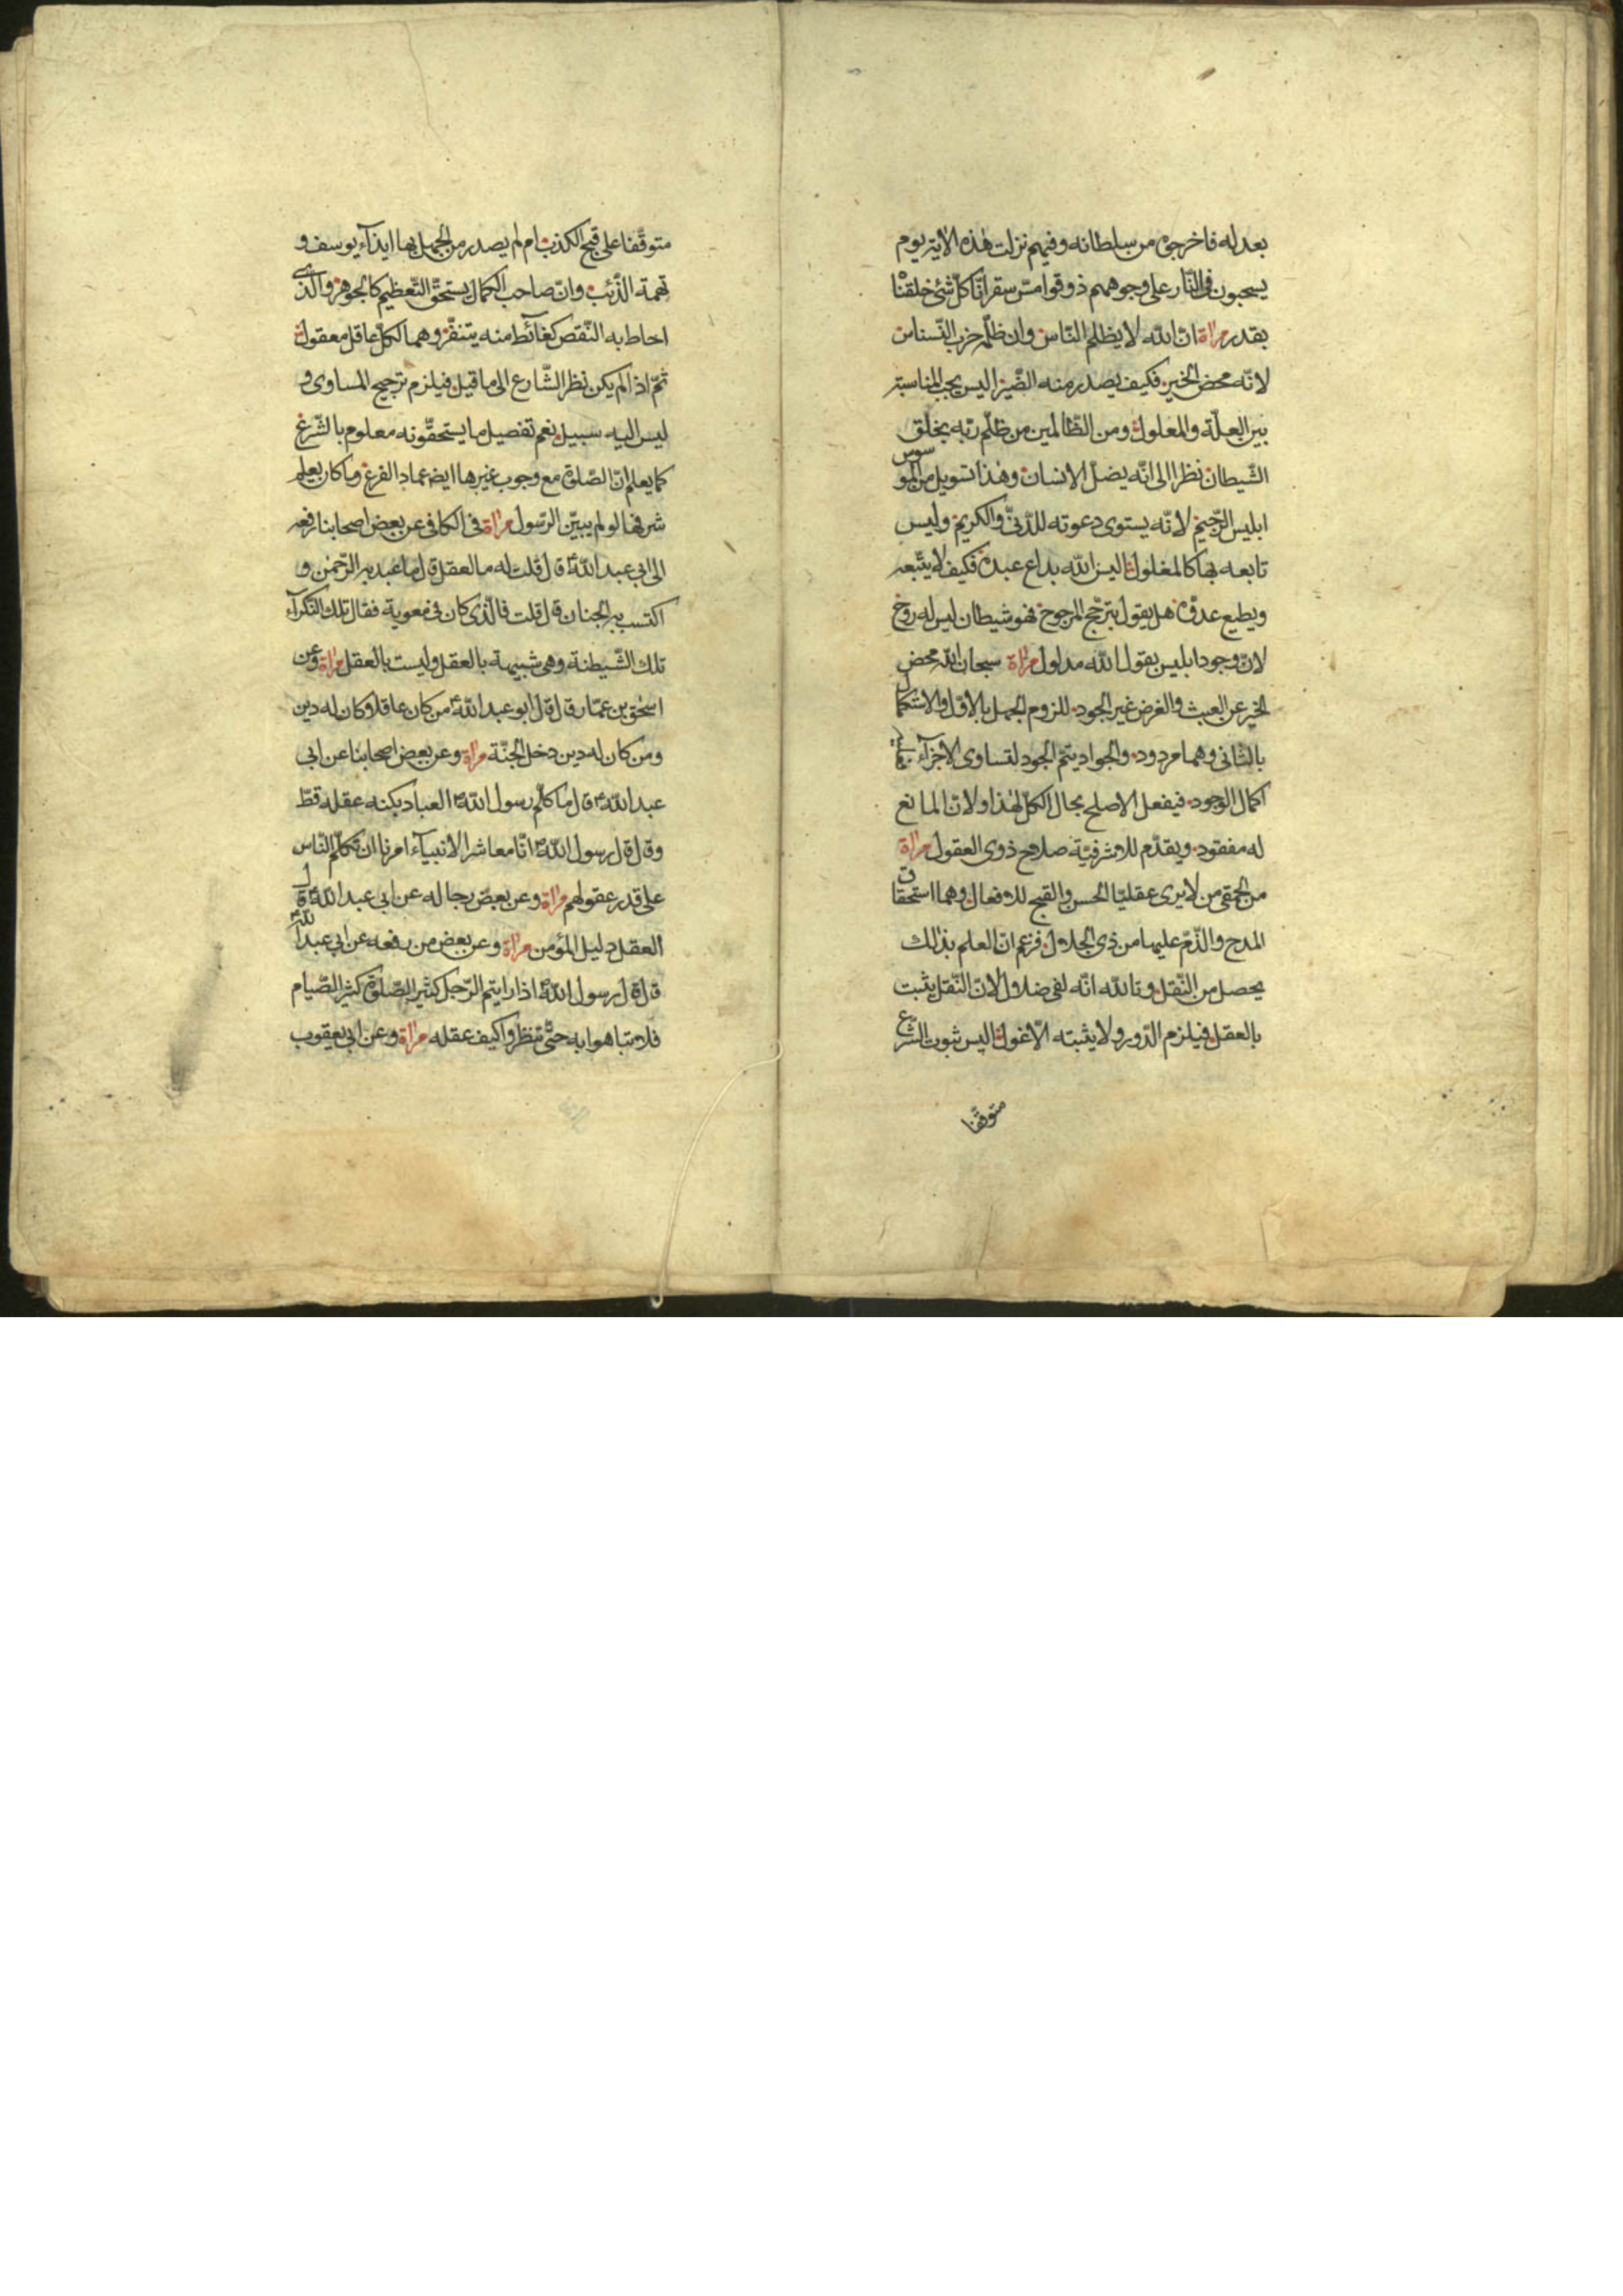 بعدله فاخرجوه من سلطانه وفيهم نزلت هذه الآية يوم
يسحبون فى النّار على وجوههم ذوقوا مسّ سقر انّا كلّ شئ خلقنا
بقدر مرآة انّ الله لا يظلم النّاس وان ظلّمه حزب النّسناس
لانّه محض الخير فكيف يصدر منه الضّير اليس يجب المناسبة
بين العلّة والمعلول ومن الظّالمين من ظلّم ربّه بخلق
الشّيطان نظرا الى انّه يضلّ الانسان وهذا تسويل من الموسوس
ابليس الرّجيم لانّه يستوى دعوته للدّنىّ والكريم وليس
تابعه بها كالمغلول اليس الله بداع عبده فكيف لا يتّبعه
ويطيع عدوّه هل يقول بترجّح المرجوح فهو شيطان ليس له روح
لانّ وجود ابليس بقول الله مدلول مرآة سبحان الله محض
الخير عن العبث والغرض غير الجود للزوم الجهل بالاوّل والاستكمال
بالثانى وهما مردود والجواد يتمّ الجود لتساوى الاجزآء
اكمال الوجود فيفعل الاصلح بحال الكلّ لهذا ولانّ المانع
له مفقود ويقدّم للاشرفيّة صلاح ذوى العقول مرآة
من الحمقى من لا يرى عقليّا الحسن والقبح للافعال وهما استحقاق
المدح والذّمّ عليها من ذى الجلال فزعم انّ العلم بذالك
يحصل من النّقل وتالله انّه لفى ضلال لانّ النّقل يثبت
بالعقل فيلزم الدّور ولا يثبته الّا غول اليس ثبوت الشّرع
متوقّفا
متوقّفا على قبح الكذب ام لم يصدر من الجهل بها ايذآء يوسف و
تهمة الذّئب وانّ صاحب الكمال يستحقّ التّعظيم كالجوهر والّذى
احاط به النّقص كغائط منه يتنفّر وهما لكلّ عاقل معقول
ثمّ اذا لم يكن نظر الشّارع الى ما قيل فيلزم ترجيح المساوى و
ليس اليه سبيل نعم تفصيل ما يستحقّونه معلوم بالشّرع
كما يعلم انّ الصّلوة مع وجوب غيرها ايضا عماد الفرع وما كان يعلم
شرفها لو لم يبيّن الرّسول مرآة فى الكافى عن بعض اصحابنا رفعه
الى ابى عبد الله ع قال قلت له ما العقل قال ما عبد به الرّحمن و
اكتسب به الجنان قال قلت فالّذى كان فى معوية فقال تلك النّكرآء
تلك الشّيطنة وهى شبيهة بالعقل وليست بالعقل مرآة وعن
اسحق بن عمّار قال قال ابو عبد الله ع من كان عاقلا كان له دين
ومن كان له دين دخل الجنّة مرآة وعن بعض اصحابنا عن ابى
عبد الله ع قال ما كلّم رسول الله ص العباد بكنه عقله قطّ
وقال قال رسول الله ص انّا معاشر الانبيآء امرنا ان نكلّم النّاس
على قدر عقولهم مرآة وعن بعض رجاله عن ابى عبد الله ع قال
العقل دليل المؤمن مرآة وعن بعض من رفعه عن ابى عبد الله ع
قال قال رسول الله ص اذا رايتم الرّجل كثير الصّلوة كثير الصّيام
فلا تباهوا به حتّى تنظروا كيف عقله مرآة وعن ابى يعقوب